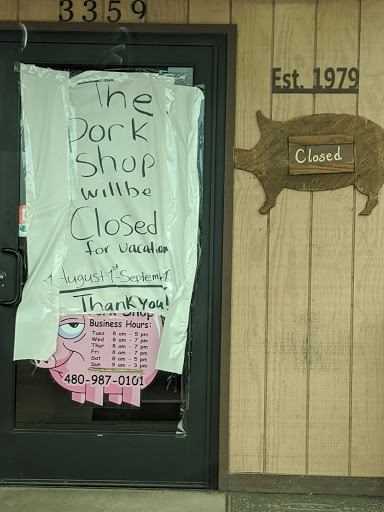 3359
The
Pork
Shop
will be
Closed
for vacation
August 1st - Septem
Thank you!
Est. 1979
Closed
Shop
Business Hours:
Tues 8 am - 5 pm
Wed 8 am - 7 pm
Thur 8 am - 7 pm
Fri 8 am - 7 pm
Sat 8 am - 5 pm
Sun 9 am - 3 pm
480-987-0101